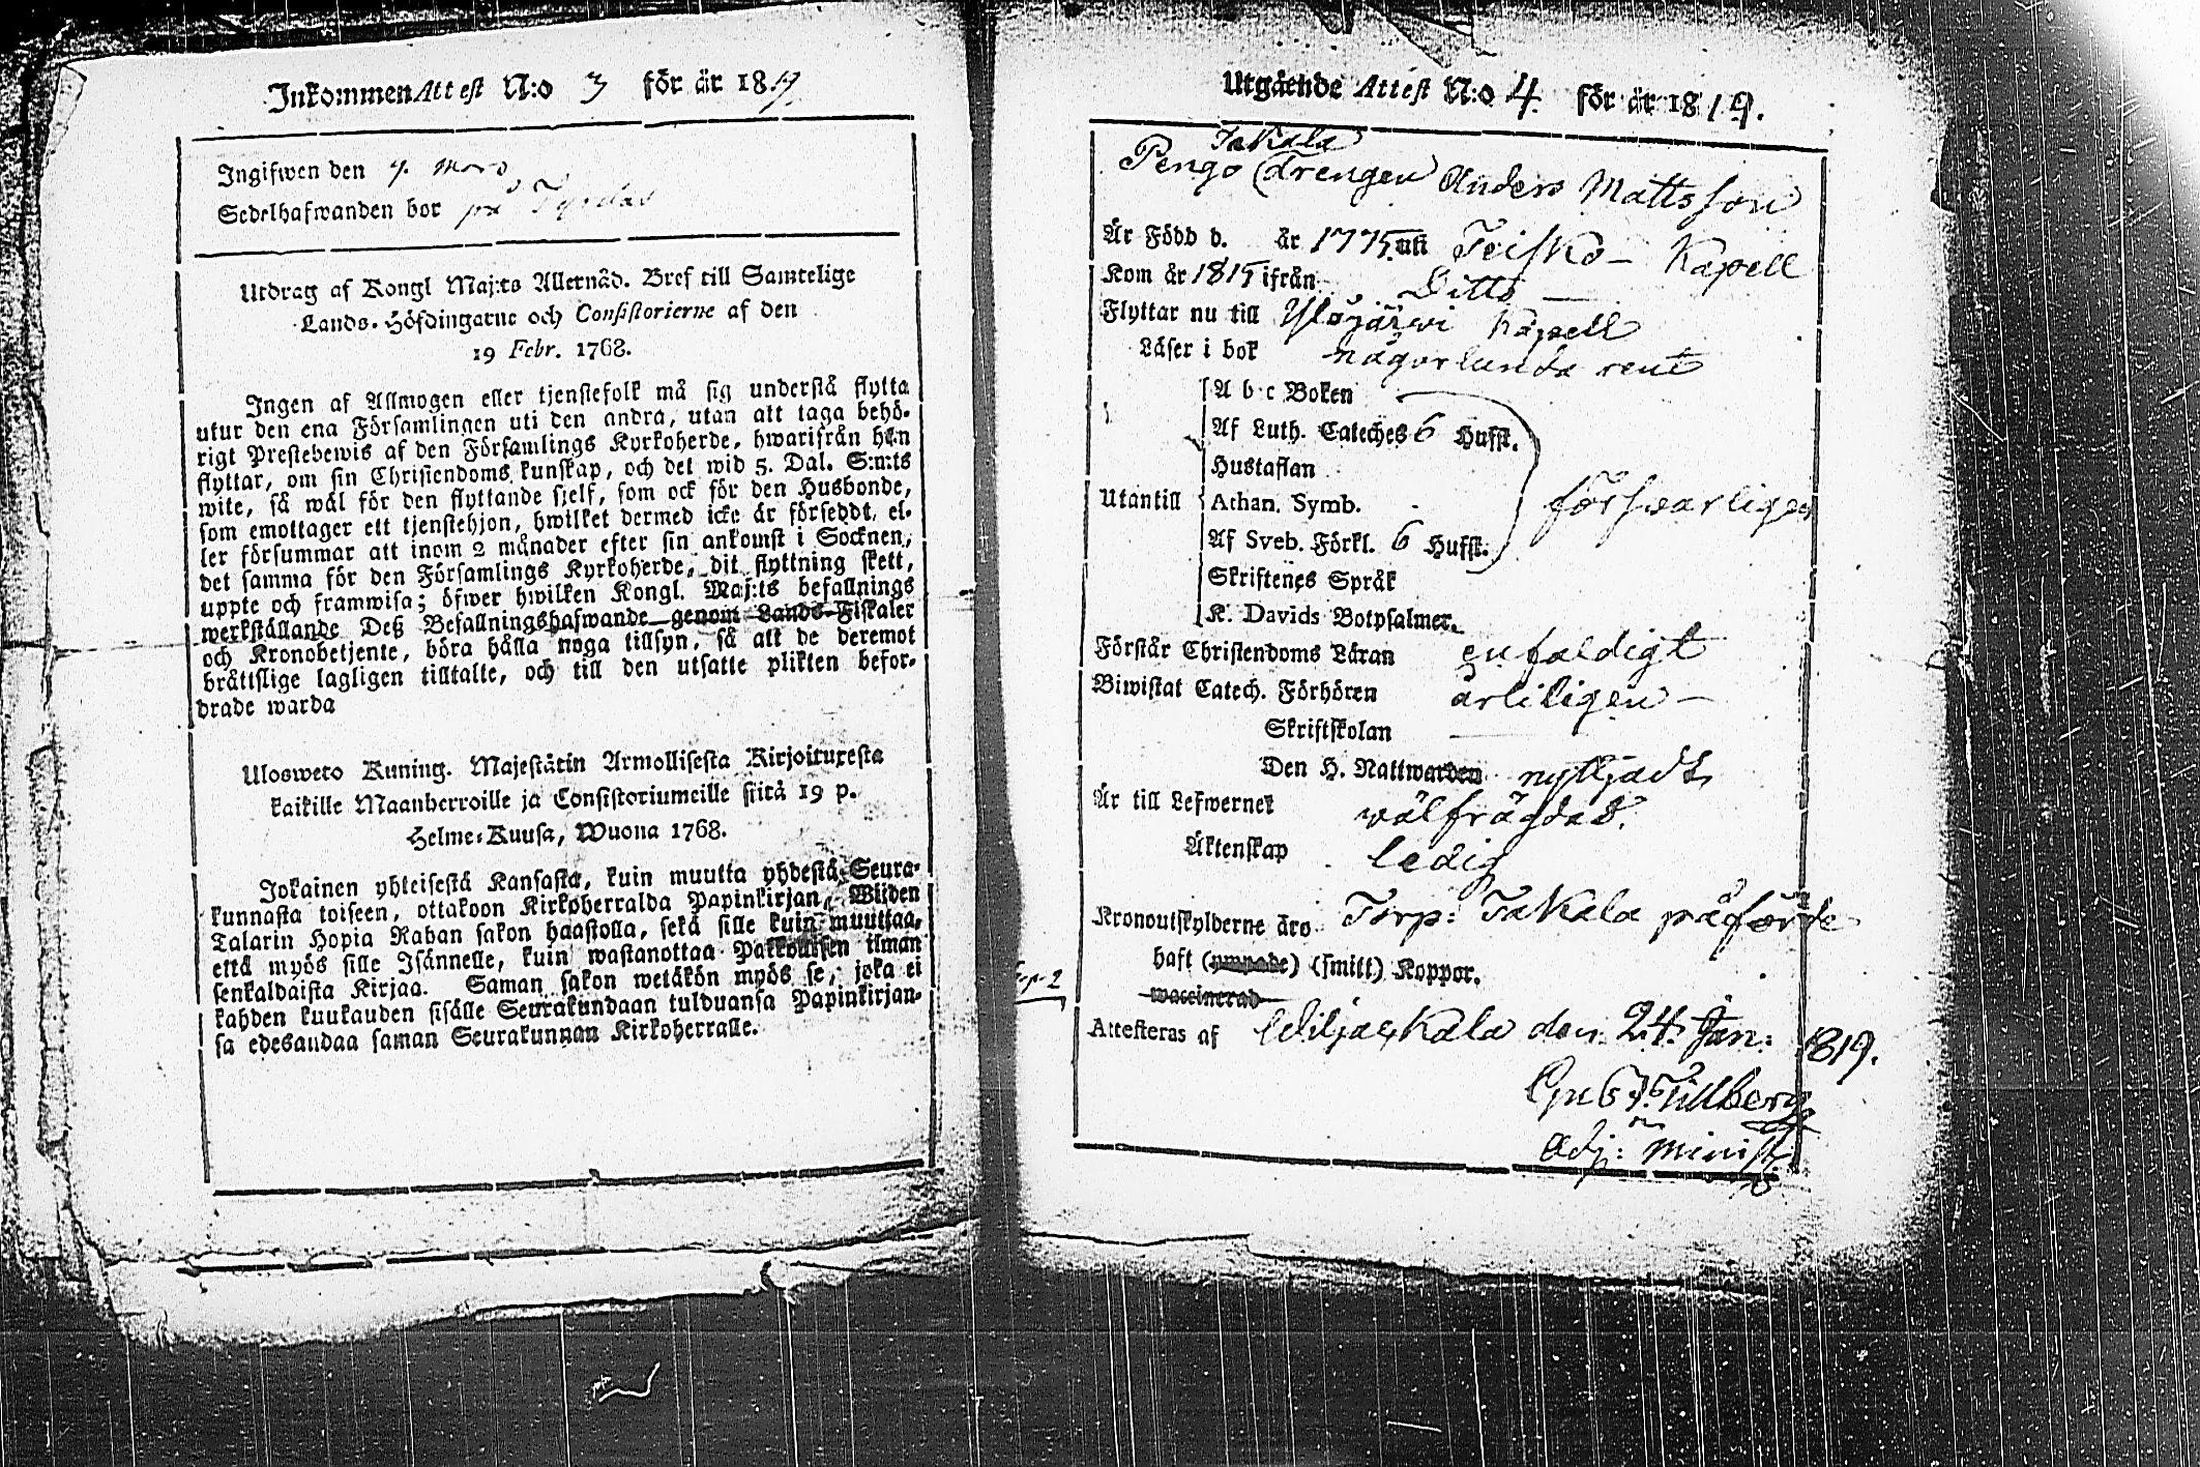 Inkommen Attest N:o 3 för år 1819
Ingifwen den 7. Mars
Sedelhafwanden bor på
Utdrag af Kongl Maj:ts Allernåd. Bref till Samtelige
Lands-Höfdingarne och Consistorierne af den
19 Febr. 1768.
Ingen af Allmogen eller tjenstefolk må sig understå flytta
utur den ena Församlingen uti den andra, utan att taga behö-
rigt Prestebewis af den Församlings Kyrkoherde, hwarifrån han
flyttar, om sin Christendoms kunskap, och det wid 5. Dal. S:m:ts
wite, så wäl för den flyttande sjelf, som ock för den Husbonde,
som emottager ett tjenstehjon, hwilket dermed icke är försedt, el-
ler försummar att inom 2 månader efter sin ankomst i Socknen,
det samma för den Församlings Kyrkoherde, dit flyttning skett,
uppte och framwisa; öfwer hwilken Kongl. Maj:ts befallnings
werkställande Deß Befallningshafwande genom Lands-Fiskaler
och Kronobetjente, böra hålla noga tillsyn, så att de deremot
bråttslige lagligen tilltalte, och till den utsatte plikten befor-
drade warda
Ulosweto Kuning. Majestätin Armollisesta Kirjoituxesta
kaikille Maanherroille ja Consistoriumeille siitä 19 p.
Helme-Kuusa, Wuona 1768.
Jokainen yhteisestä Kansasta, kuin muutta yhdestä Seura-
kunnasta toiseen, ottakoon Kirkoherralda Papinkirjan, Wijden
Talarin Hopia Rahan sakon haastolla, sekä sille kuin muuttaa,
että myös sille Isännelle, kuin wastanottaa Palkouisen ilman
senkaldaista Kirjaa. Saman sakon wetäkön myös se, joka ei
kahden kuukauden sisälle Seurakundaan tulduansa Papinkirjan-
sa edesandaa saman Seurakunnan Kirkoherralle.
Utgående Attest N:o 4 för år 1819.
Takala
Pengo (Drengen Anders Mattsson
Är Född d. år 1775 uti Teisko – Kapell
Kom år 1815 ifrån Ditto —
Flyttar nu till Ylöjärwi Kapell
Läser i bok någorlunda rent
A b c Boken
Af Luth. Cateches 6 Hufst.
Hustaflan
Utantill Athan. Symb. förswarligen
Af Sveb. Förkl. 6 Hufst.
Skriftenes Språk
K. Davids Botpsalmer.
Förstår Christendoms Läran enfaldigt
Biwistat Catech. Förhören årliligen –
Skriftskolan —
Den H. Nattwarden nyttjadt
Är till Lefwernet wälfrägdad.
Äktenskap ledig
Kronoutskylderne äro Torp: Takala påförde
haft (ympade) (smitt) Koppor.
waccinerad
Attesteras af den 24. Jan: 1819.
Tillberg
Adj: Minist: